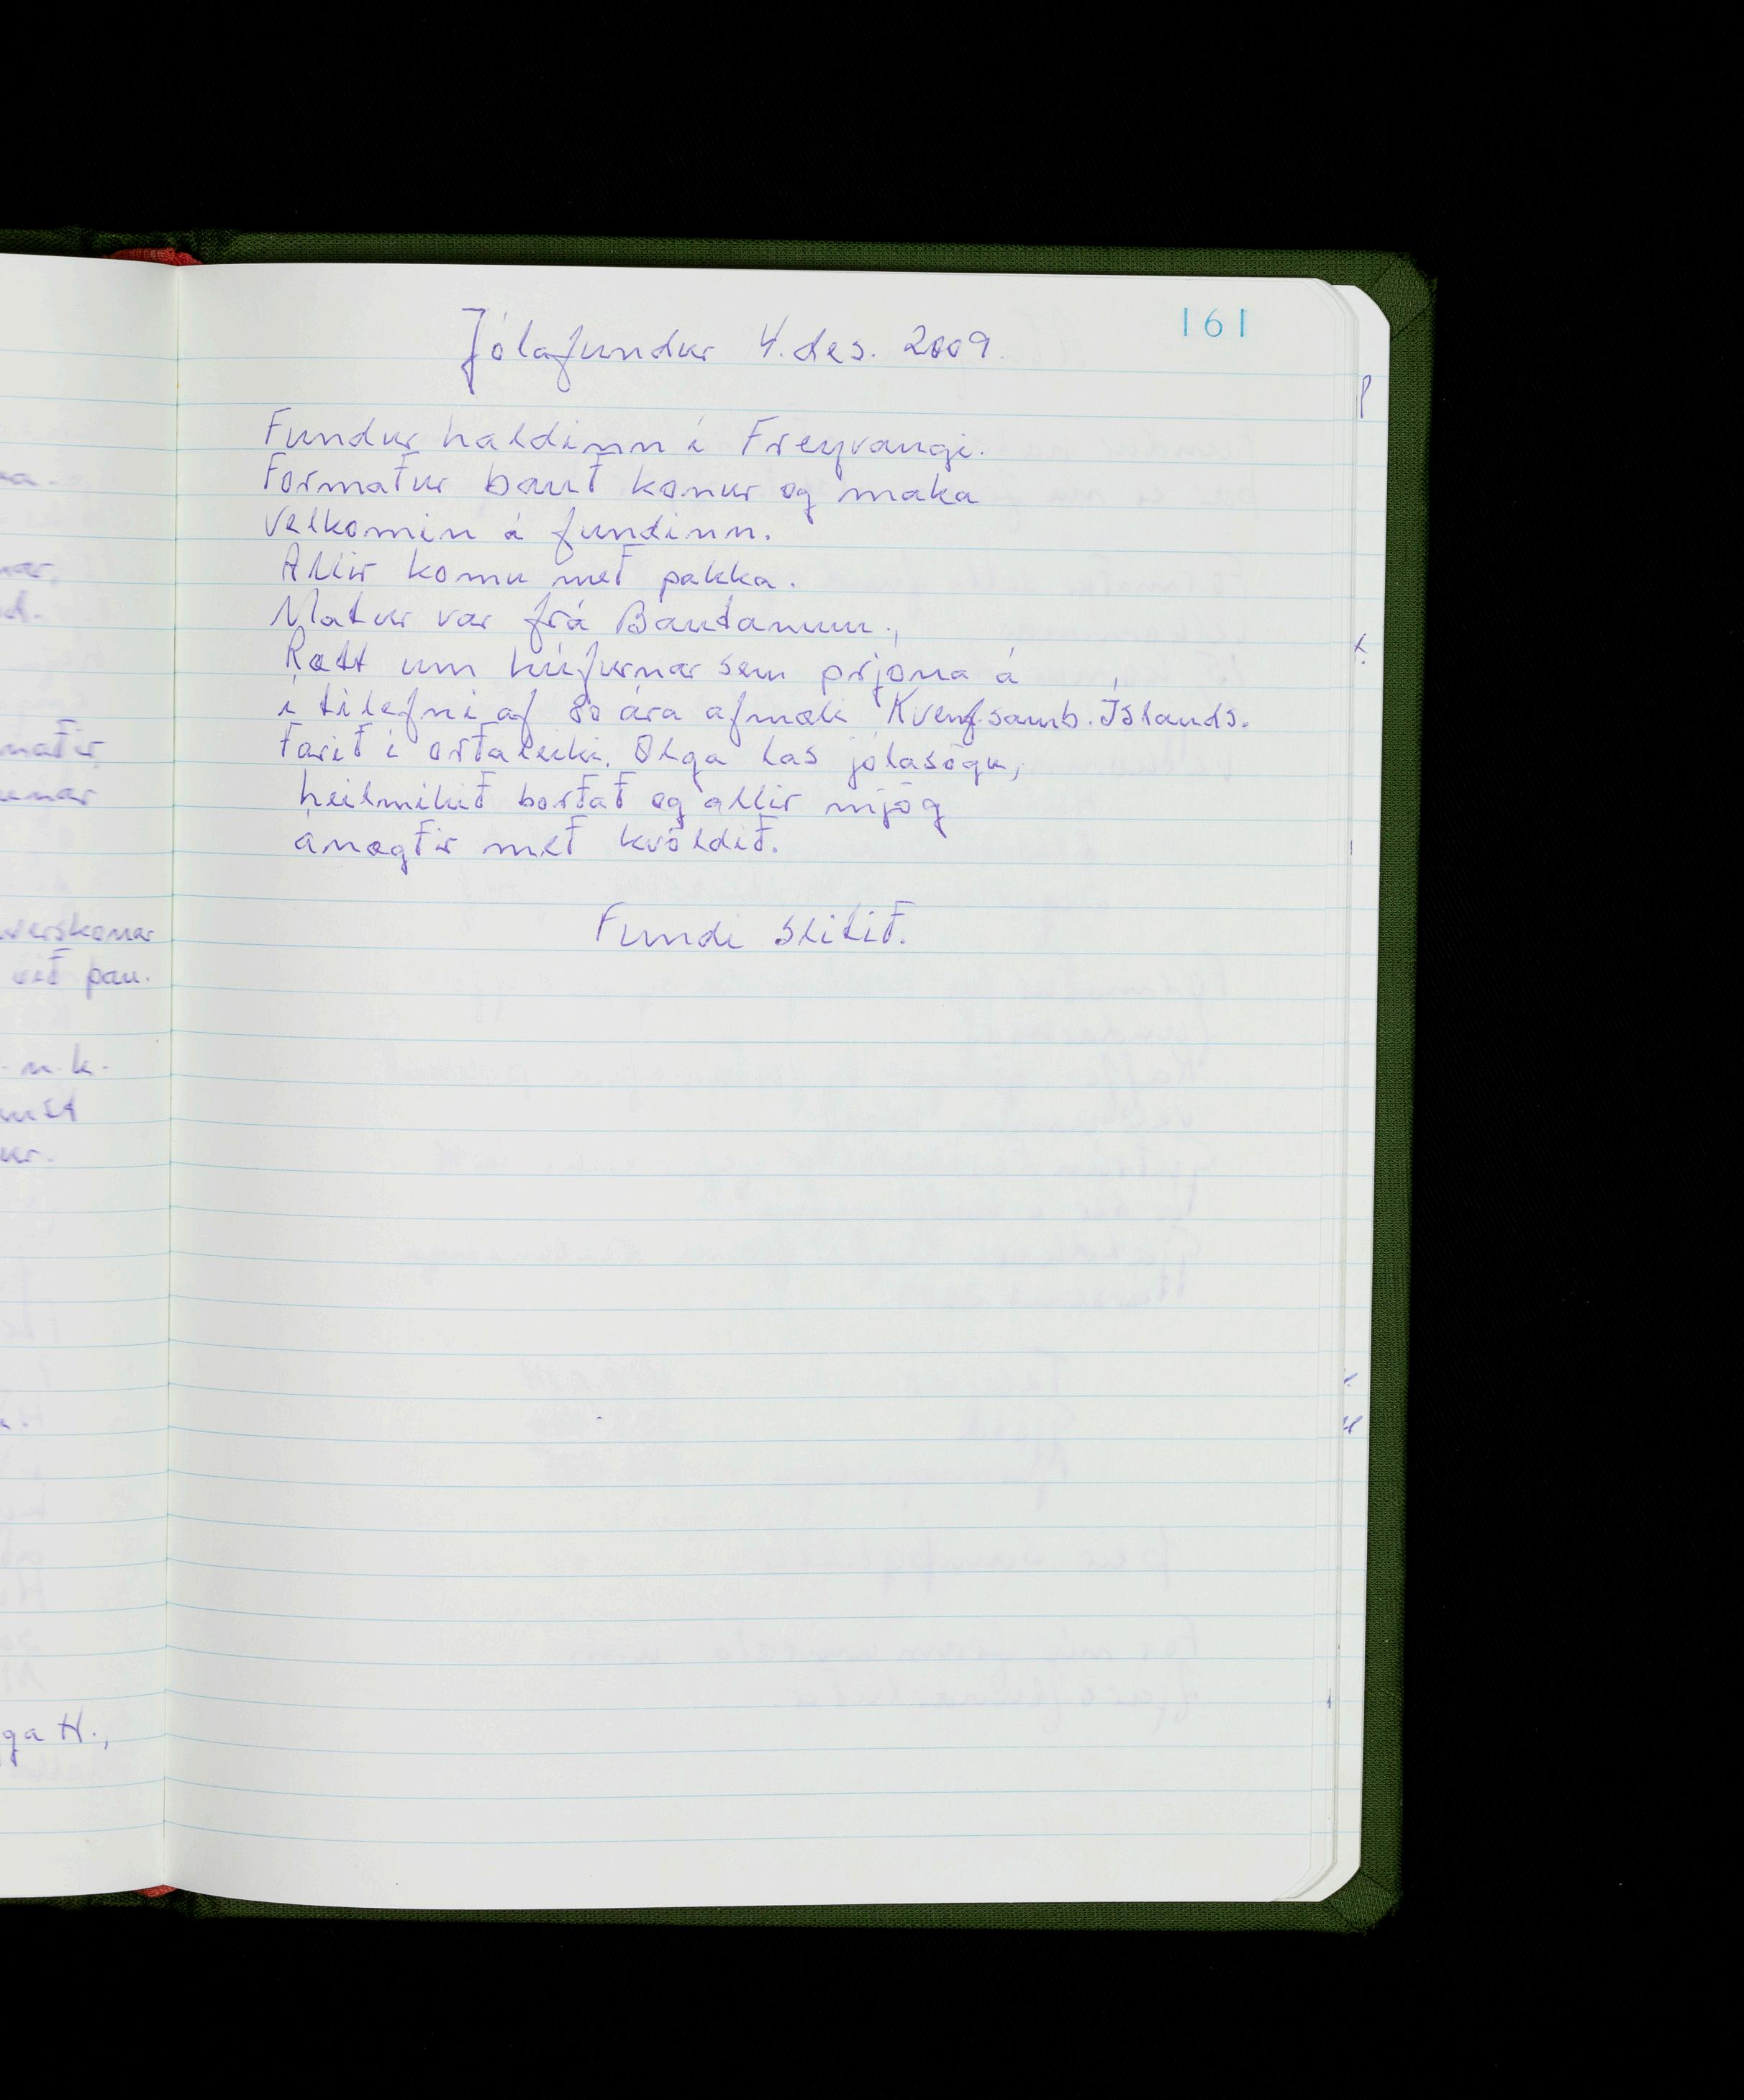 161
Jólafundur 4. des. 2009.
Fundur haldinn í Freyvangi.
Formaður bauð konur og maka
velkomin á fundinn.
Allir komu með pakka.
Matur var frá Bautanum.,
Rætt um húfurnar sem prjóna á
í tilefni af 80 ára afmæli Kvenfsamb. Íslands.
Farið í orðaleiki. Olga las jólasögu,
heilmikið borðað og allir mjög
ánægðir með kvöldið.
Fundi slitið.
verskonar
við þau.
n.k.
ga H.,